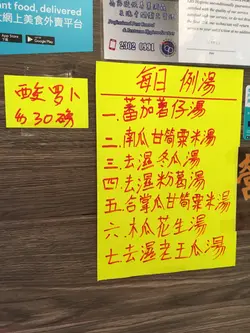 ant food, delivered
大網上美食外賣平台
Google Play
2302 0991
酸罗卜
每日例湯
一.蕃茄薯仔湯
二.南瓜甘筒粟米湯
三.去濕冬瓜湯
四.去濕粉葛湯
五.合掌瓜甘筒粟米湯
六.木瓜花生湯
七.去濕老王瓜湯